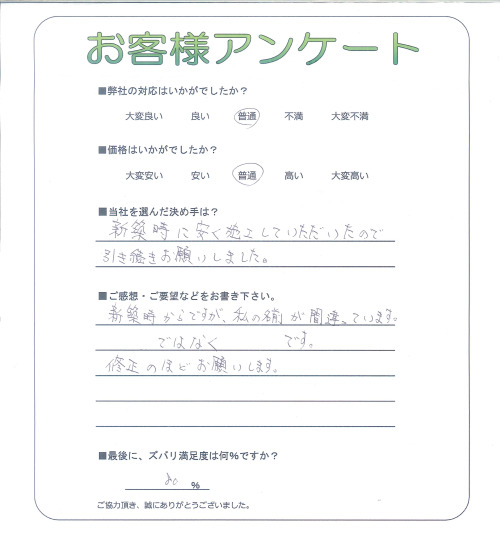 お客様アンケート
■弊社の対応はいかがでしたか？
大変良い 良い 普通 不満 大変不満
■価格はいかがでしたか？
大変安い 安い 普通 高い 大変高い
■当社を選んだ決め手は？
新築時に安く施工していただいたので
引き続きお願いしました。
■ご感想・ご要望などをお書き下さい。
新築時からですが、私の名前が間違っています。
ではなく です。
修正のほどお願いします。
■最後に、ズバリ満足度は何%ですか？
80 %
ご協力頂き、誠にありがとうございました。